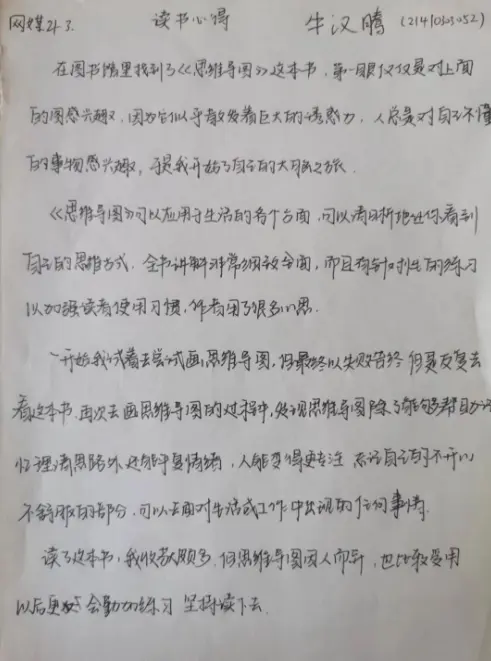 网媒21-3. 读书心得 牛汉腾 (21410303052)
在图书馆里找到了《思维导图》这本书,第一眼仅仅是对上面
的图感兴趣,因为它似乎散发着巨大的诱惑力,人总是对自己不懂
的事物感兴趣,于是我开始了自己的大脑之旅.
《思维导图》可以应用于生活的各个方面,可以清晰地让你看到
自己的思维方式,全书讲解非常细致全面,而且有针对性的练习
以加强读者使用习惯,作者用了很多心思.
一开始我试着去尝试画思维导图,但最终以失败告终 但是反复去
看这本书.再次去画思维导图的过程中,发现思维导图除了能够帮助
忆理清思路外 还能平复情绪,人能变得更专注 忘记自己的不开心
不舒服的部分,可以去面对生活或工作中出现的任何事情.
读了这本书,我收获颇多,但思维导图因人而异,也比较受用
以后更会勤加练习 坚持读下去.